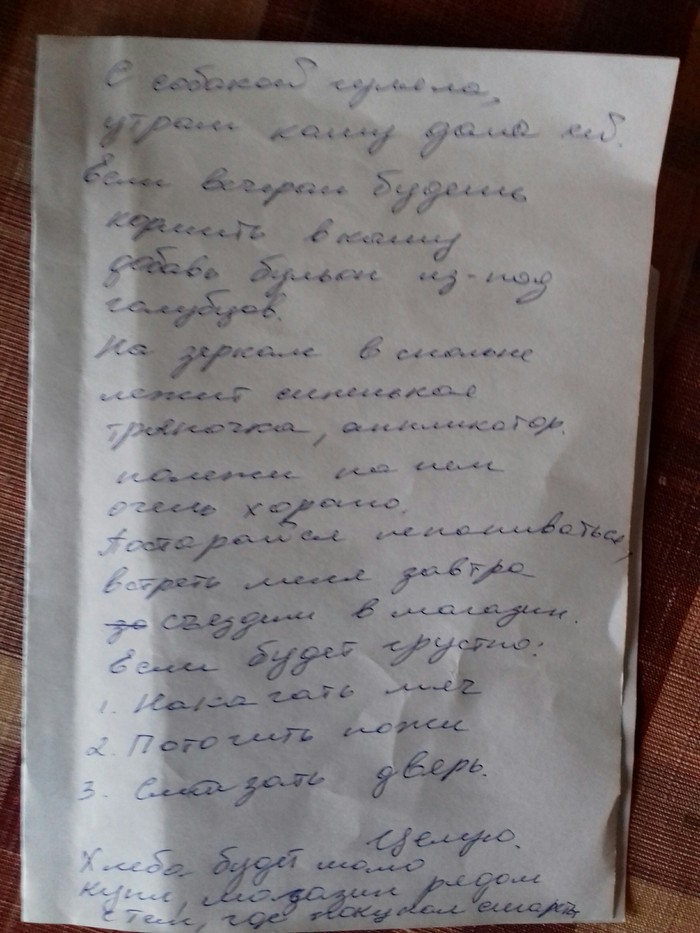 С собакой гуляла,
утром кашу дала ей.
Если вечером будешь
кормить в кашу
добавь бульон из-под
голубцов.
На зеркале в спальне
лежит синенькая
тряпочка, аппликатор.
полежи на нем
очень хорошо.
Постарайся непопиваться,
встреть меня завтра
за съездим в магазин.
Если будет грустно:
1. Накачать мяч
2. Поточить ножи
3. Смазать дверь.
Целую.
Хлеба будет мало
купи, магазин рядом
с тем, где покупал